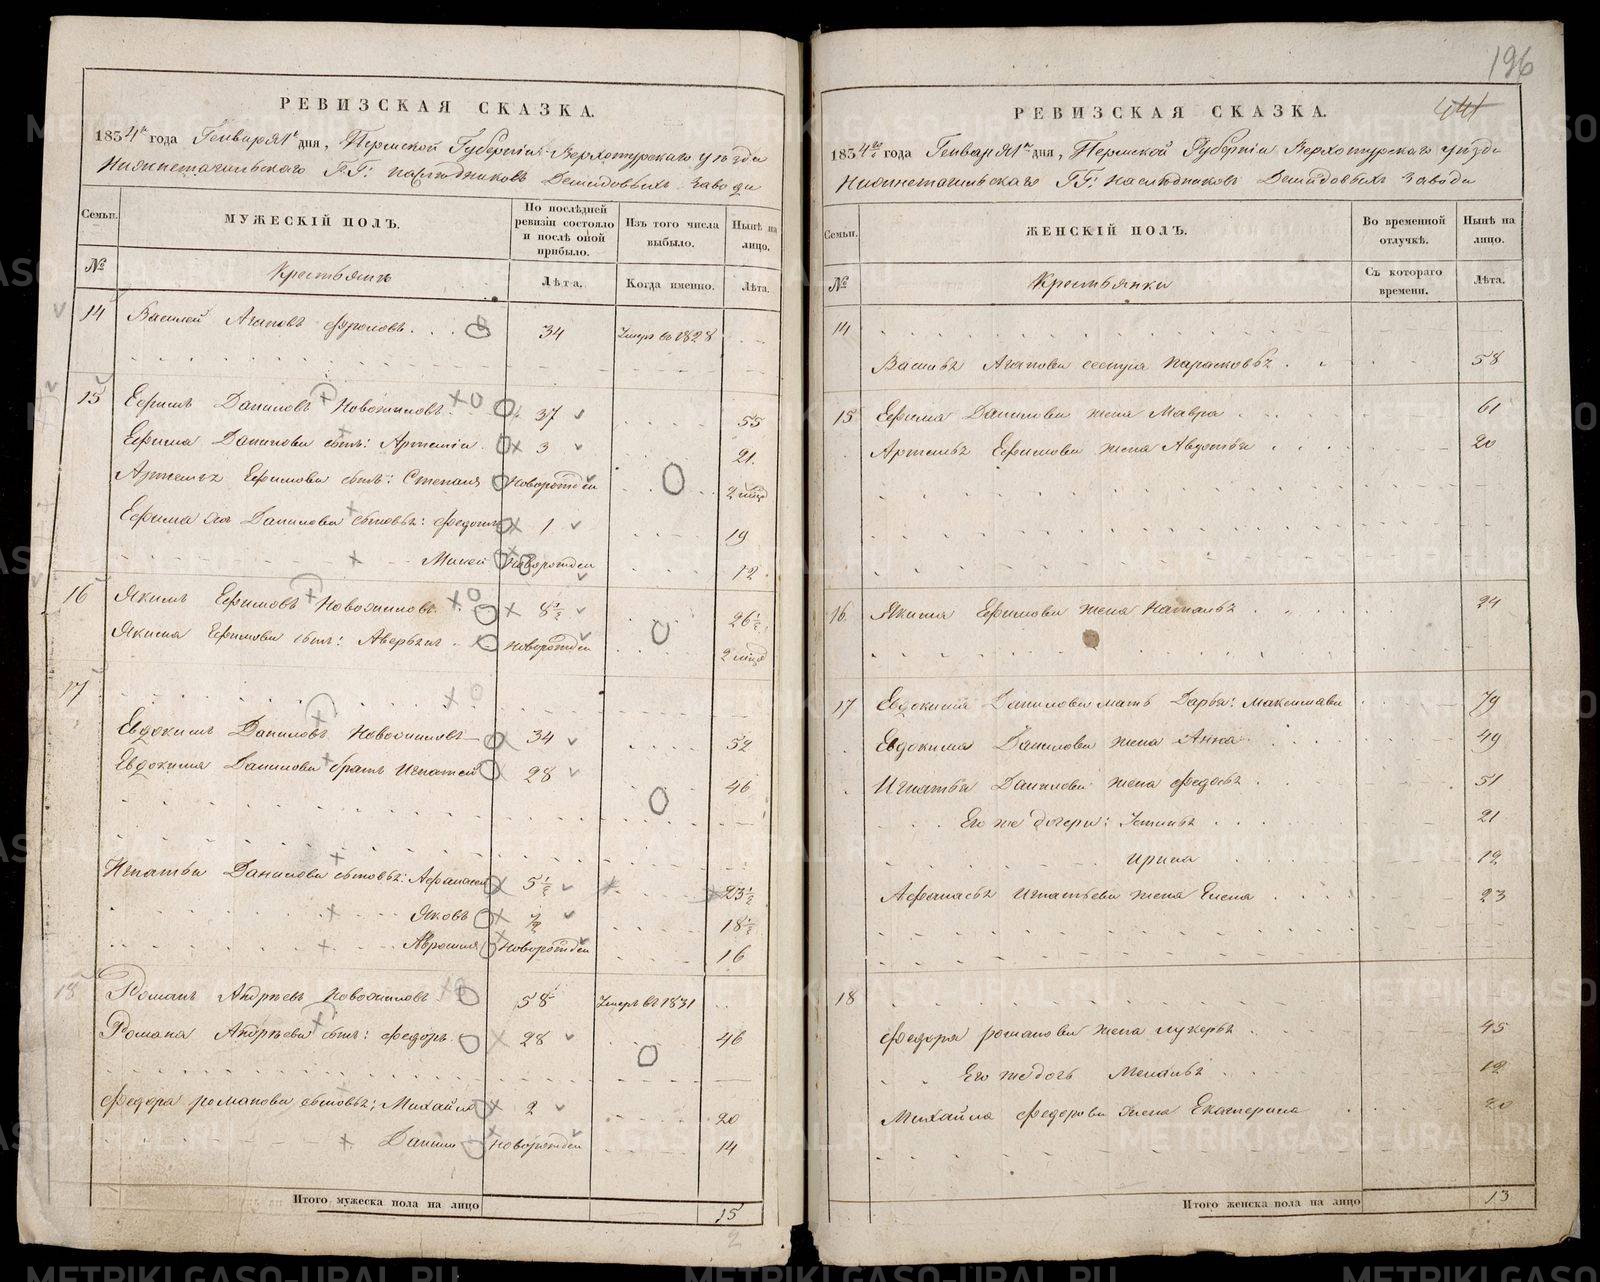 РЕВИЗСКАЯ СКАЗКА.
1834 года Генваря 1 дня, Пермской Губернiи Верхотурскаго уѣзда
Нижнетагильскаго ГГ: наслѣдниковъ Демидовыхъ завода
Семьи.
МУЖЕСКIЙ ПОЛЪ.
По послѣдней ревизiи состояло и послѣ оной прибыло.
Изъ того числа выбыло.
Нынѣ на лицо.
№
Крестьянъ
Лѣта.
Когда именно.
Лѣта.
14 Василей Агаповъ Фроловъ 34 Умеръ въ 1828
15 Ефимъ Даниловъ Новожиловъ 37 55
Ефима Данилова сынъ: Артемiй 3 21
Артемья Ефимова сынъ: Степанъ Новорожден 2 мѣся
Ефима же Данилова сыновья: Федотъ 1 19
Михей Новорожден 12
16 Якимъ Ефимовъ Новожиловъ 8½ 26½
Якима Ефимова сынъ: Аверьянъ Новорожден 2 мѣся
17
Евдокимъ Даниловъ Новожиловъ 34 52
Евдокима Данилова братъ Игнатей 28 46
Игнатья Данилова сыновья: Афанасей 5½ 23½
Яковъ ½ 18½
Новорожден 16
18 Романъ Андрѣевъ Новожиловъ 58 Умеръ въ 1831
Романа Андрѣева сынъ: Федоръ 28 46
Федора романова сыновья; Михайло 2 20
Данило Новорожден 14
Итого мужеска пола на лицо 15
2
196
РЕВИЗСКАЯ СКАЗКА.
1834 года Генваря 1 дня, Пермской Губернiи Верхотурскаго уѣзда
Нижнетагильскаго ГГ: наслѣдниковъ Демидовыхъ завода
Семьи.
ЖЕНСКIЙ ПОЛЪ.
Во временной отлучкѣ.
Нынѣ на лицо.
№
Крестьянки
Съ котораго времени.
Лѣта.
14
Василья Агапова сестра Парасковья 58
15 Ефима Данилова жена Мавра 61
Артемья Ефимова жена Авдотья 20
16 Якима Ефимова жена Наталья 24
17 Евдокима Данилова мать Дарья: Максимова 79
Евдокима Данилова жена Анна 49
Игнатья Данилова жена Федосья 51
Его же дочери: Устинья 21
Ирина 12
Афанасья Игнатьева жена Елена 23
18
Федора романова жена Лукерья 45
Его же дочь Меланья 12
Михайла Федорова жена Екатерина 20
Итого женска пола на лицо 13
METRIKI.GASO-URAL.RU